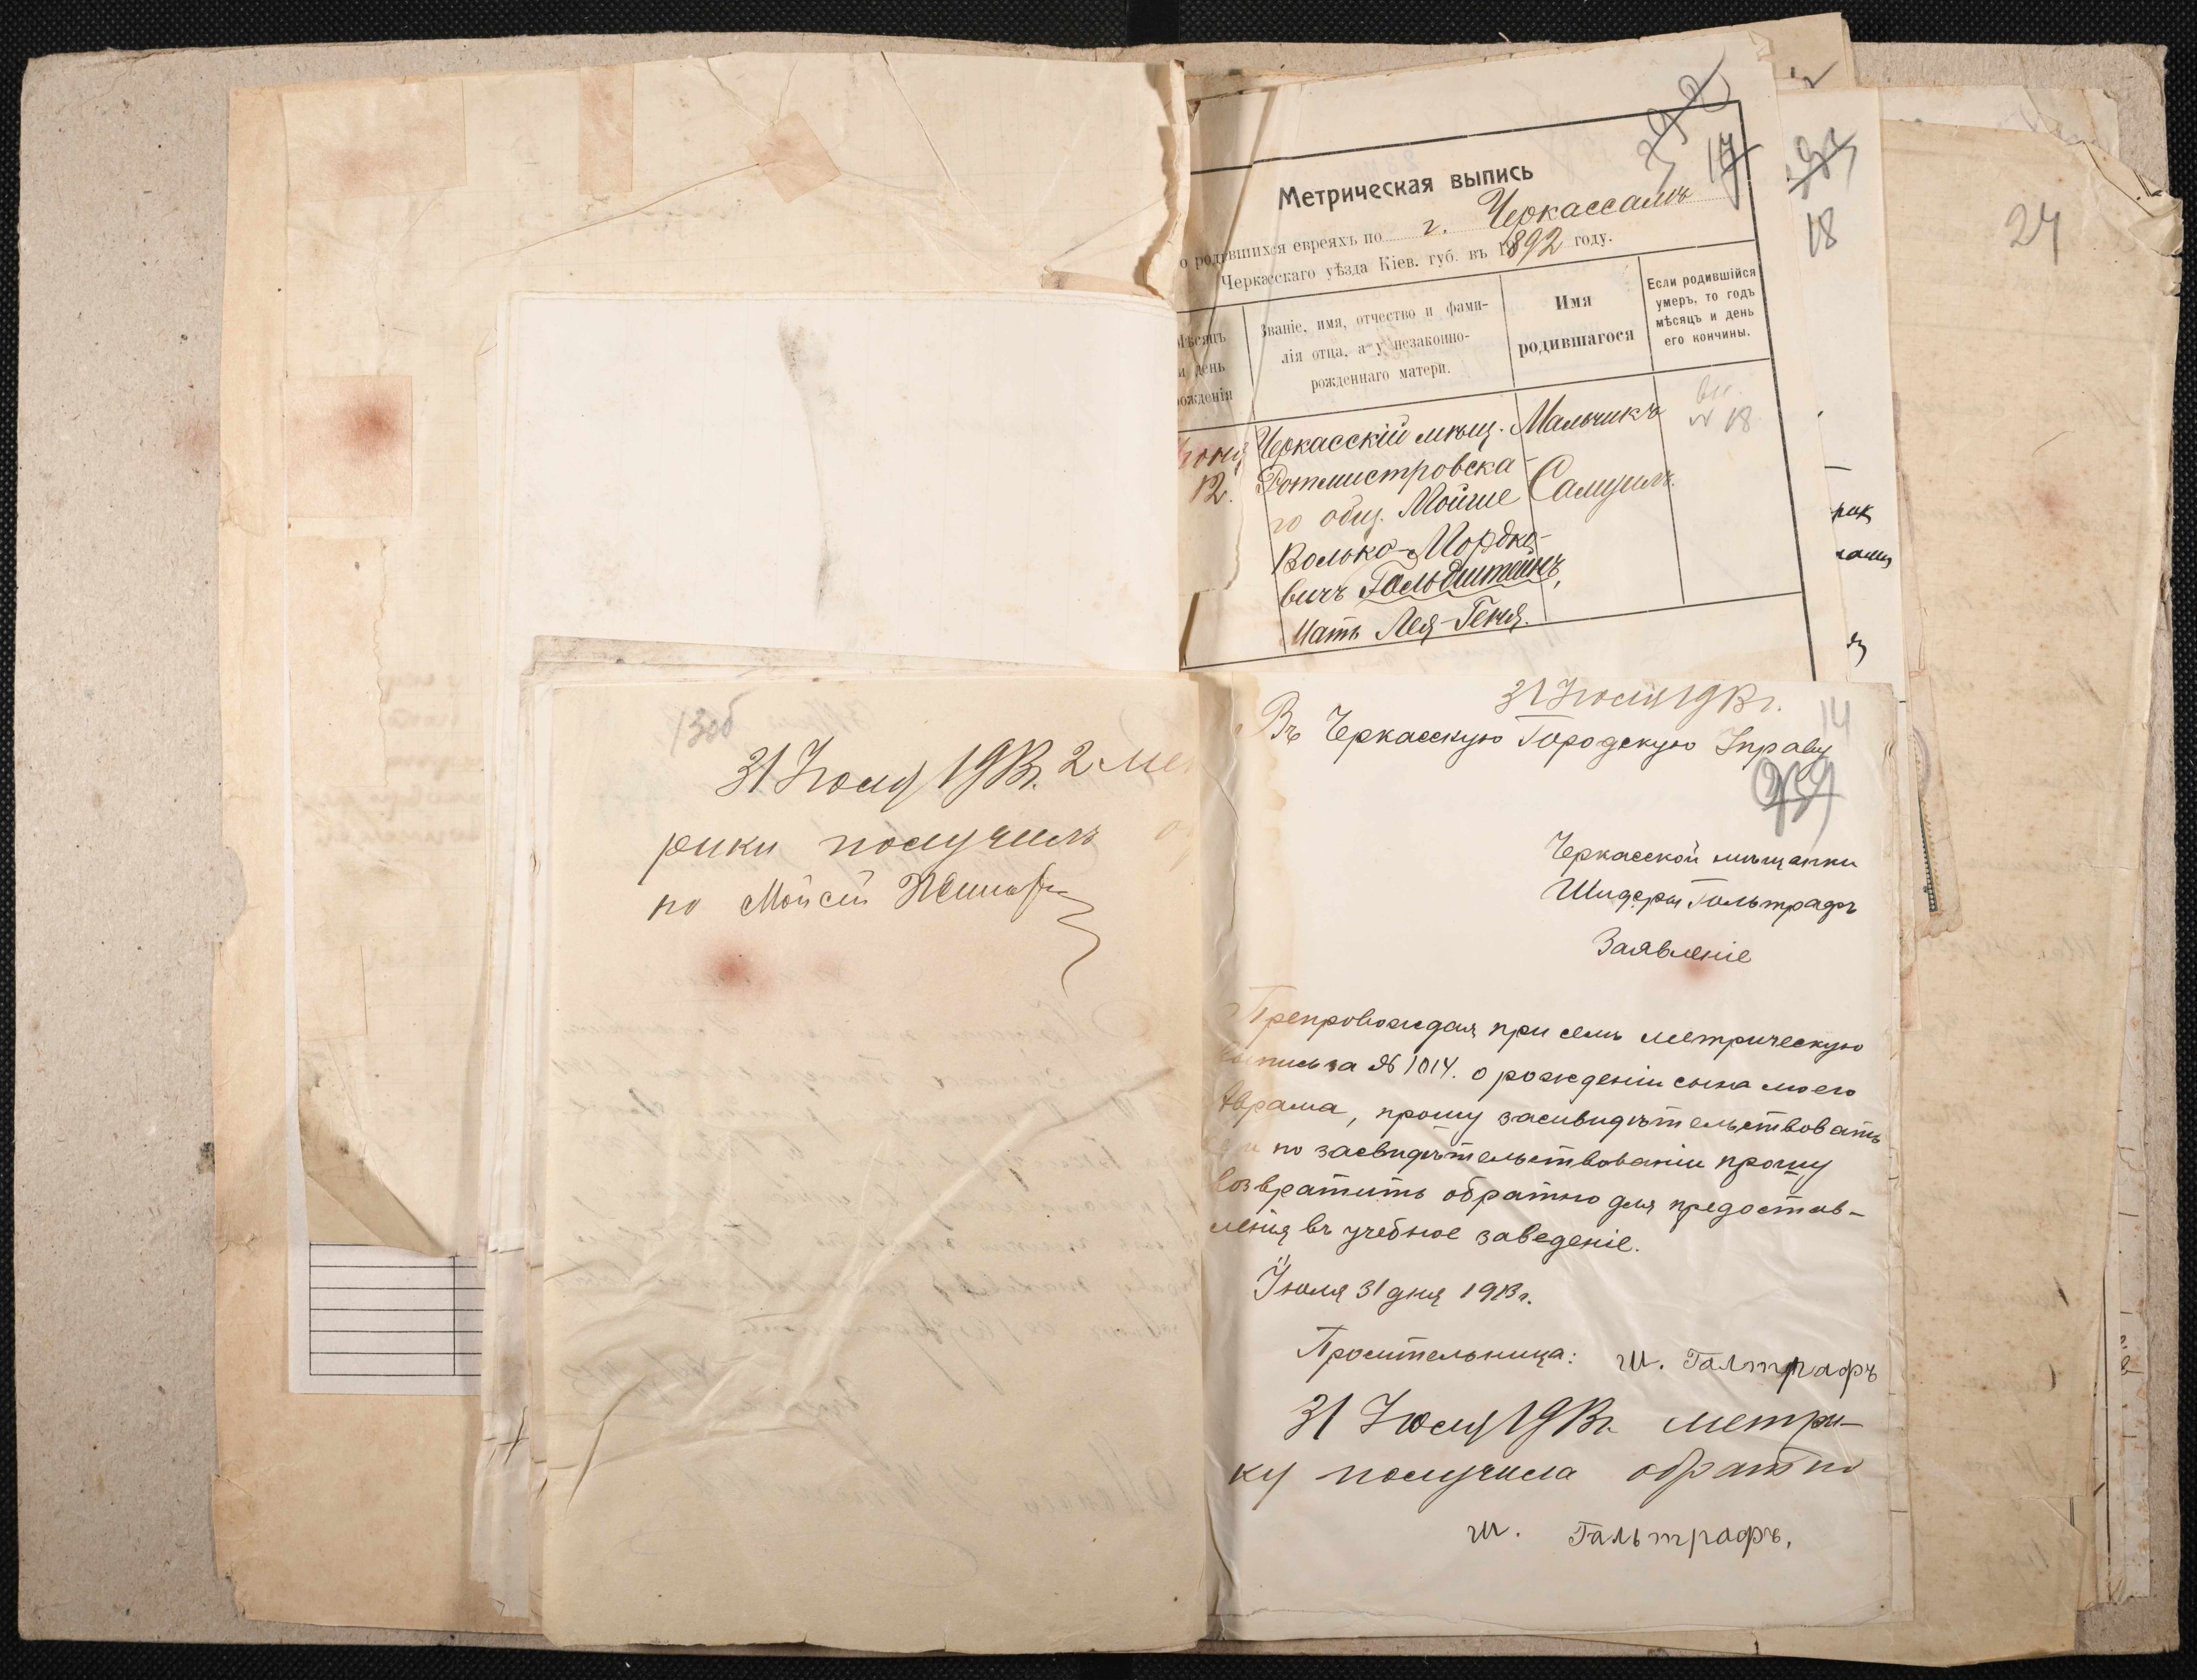 13об
31 Іюля 1913г. 2 мет
рики получилъ
по Мойсей
Метрическая выпись
17
о родившихся евреяхъ по г. Черкассамъ
Черкасскаго уѣзда Кіев. губ. въ 1892 году.
Мѣсяцъ
и день
рожденія
Званіе, имя, отчество и фами-
лія отца, а у незаконно-
рожденнаго матери.
Имя
родившагося
Если родившійся
умеръ, то годъ
мѣсяцъ и день
его кончины.
12.
Черкасскій мѣщ.
Ротмистровска-
го общ. Мойше
Волько-Мордко-
вичъ Гольдштейнъ,
Мать Лея-Геня.
Мальчикъ
Самуилъ.
18
24
31 Іюля 1913г.
14
Въ Черкасскую Городскую Управу
Черкасской мѣщанки
Гольтрафъ
Заявленіе
Препровождая при семъ метрическую
выпись за № 1014. о рожденіи сына моего
Аврама, прошу засвидѣтельствовать
ее и по засвидѣтельствованіи прошу
возвратить обратно для предостав-
ленія въ учебное заведеніе.
Іюля 31 дня 1913г.
Просительница: Ш. Галтрафъ
31 Іюля 1913г. метри-
ку получила обратно
Ш. Гальтрафъ,